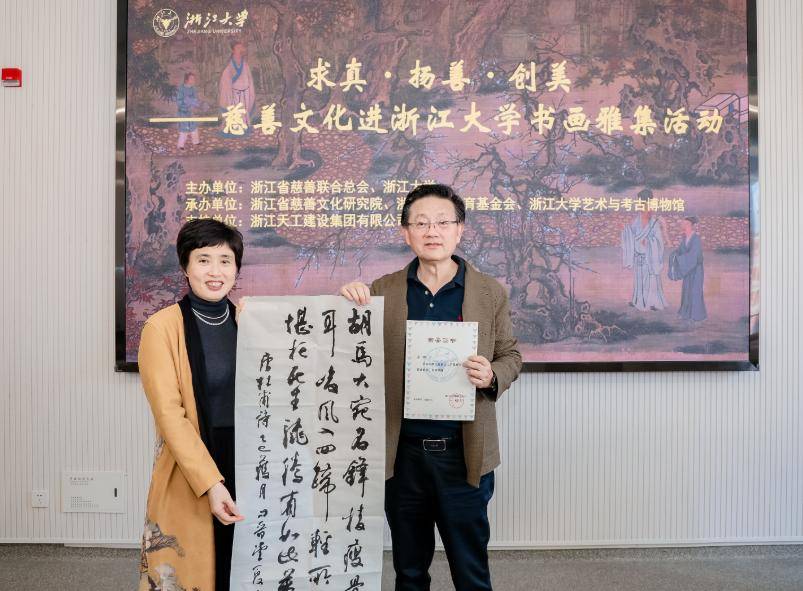 浙江大学
ZHEJIANG UNIVERSITY
求真·扬善·创美
——慈善文化进浙江大学书画雅集活动
主办单位：浙江省慈善联合总会、浙江大学
承办单位：浙江省慈善文化研究院、浙 育基金会、浙江大学艺术与考古博物馆
支持单位：浙江天工建设集团有限公司
胡馬大宛名鋒棱瘦骨
耳峻风入四蹄輕所
堪托死生骁腾有如此萬
唐杜甫诗